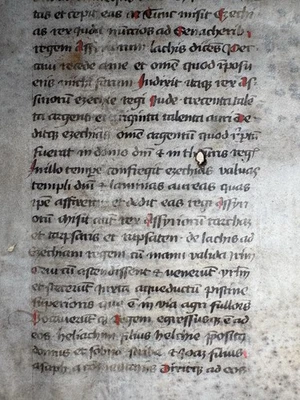 tas et cepit eas Tunc misit Ezechi
as rex iuda nuncios ad Senacherib
regem Assirioru lachis dices Pec
caui recede a me et ome quod iposu
eris michi feram Indixit itaq rex as
siriorū ezechie regi Jude trecenta tale
ta argenti et triginta talenta auri De
ditq ezechias ome argentū quod rptū
fuerat in domo dni et in thesauris regis
In illo tempe confregit ezechias valuas
templi dni et laminas aureas quas
ipe affixerat et dedit eas regi Assiri
orū misit aut rex Assyriorū tarthan
et rapsaris et rapsacen de lachis ad
ezechiam regem cū manu valida irlm
Qui cū ascendissent et venerūt irlm
et steterūt iuxta aqueductū piscine
superioris que e in via agri fullonis
Vocauerūtq Regem egressusq e ad
eos heliachim filius helchie ppositus
domus et sobna scriba et Joas filius
asaph a comentariis Dixitq ad eos